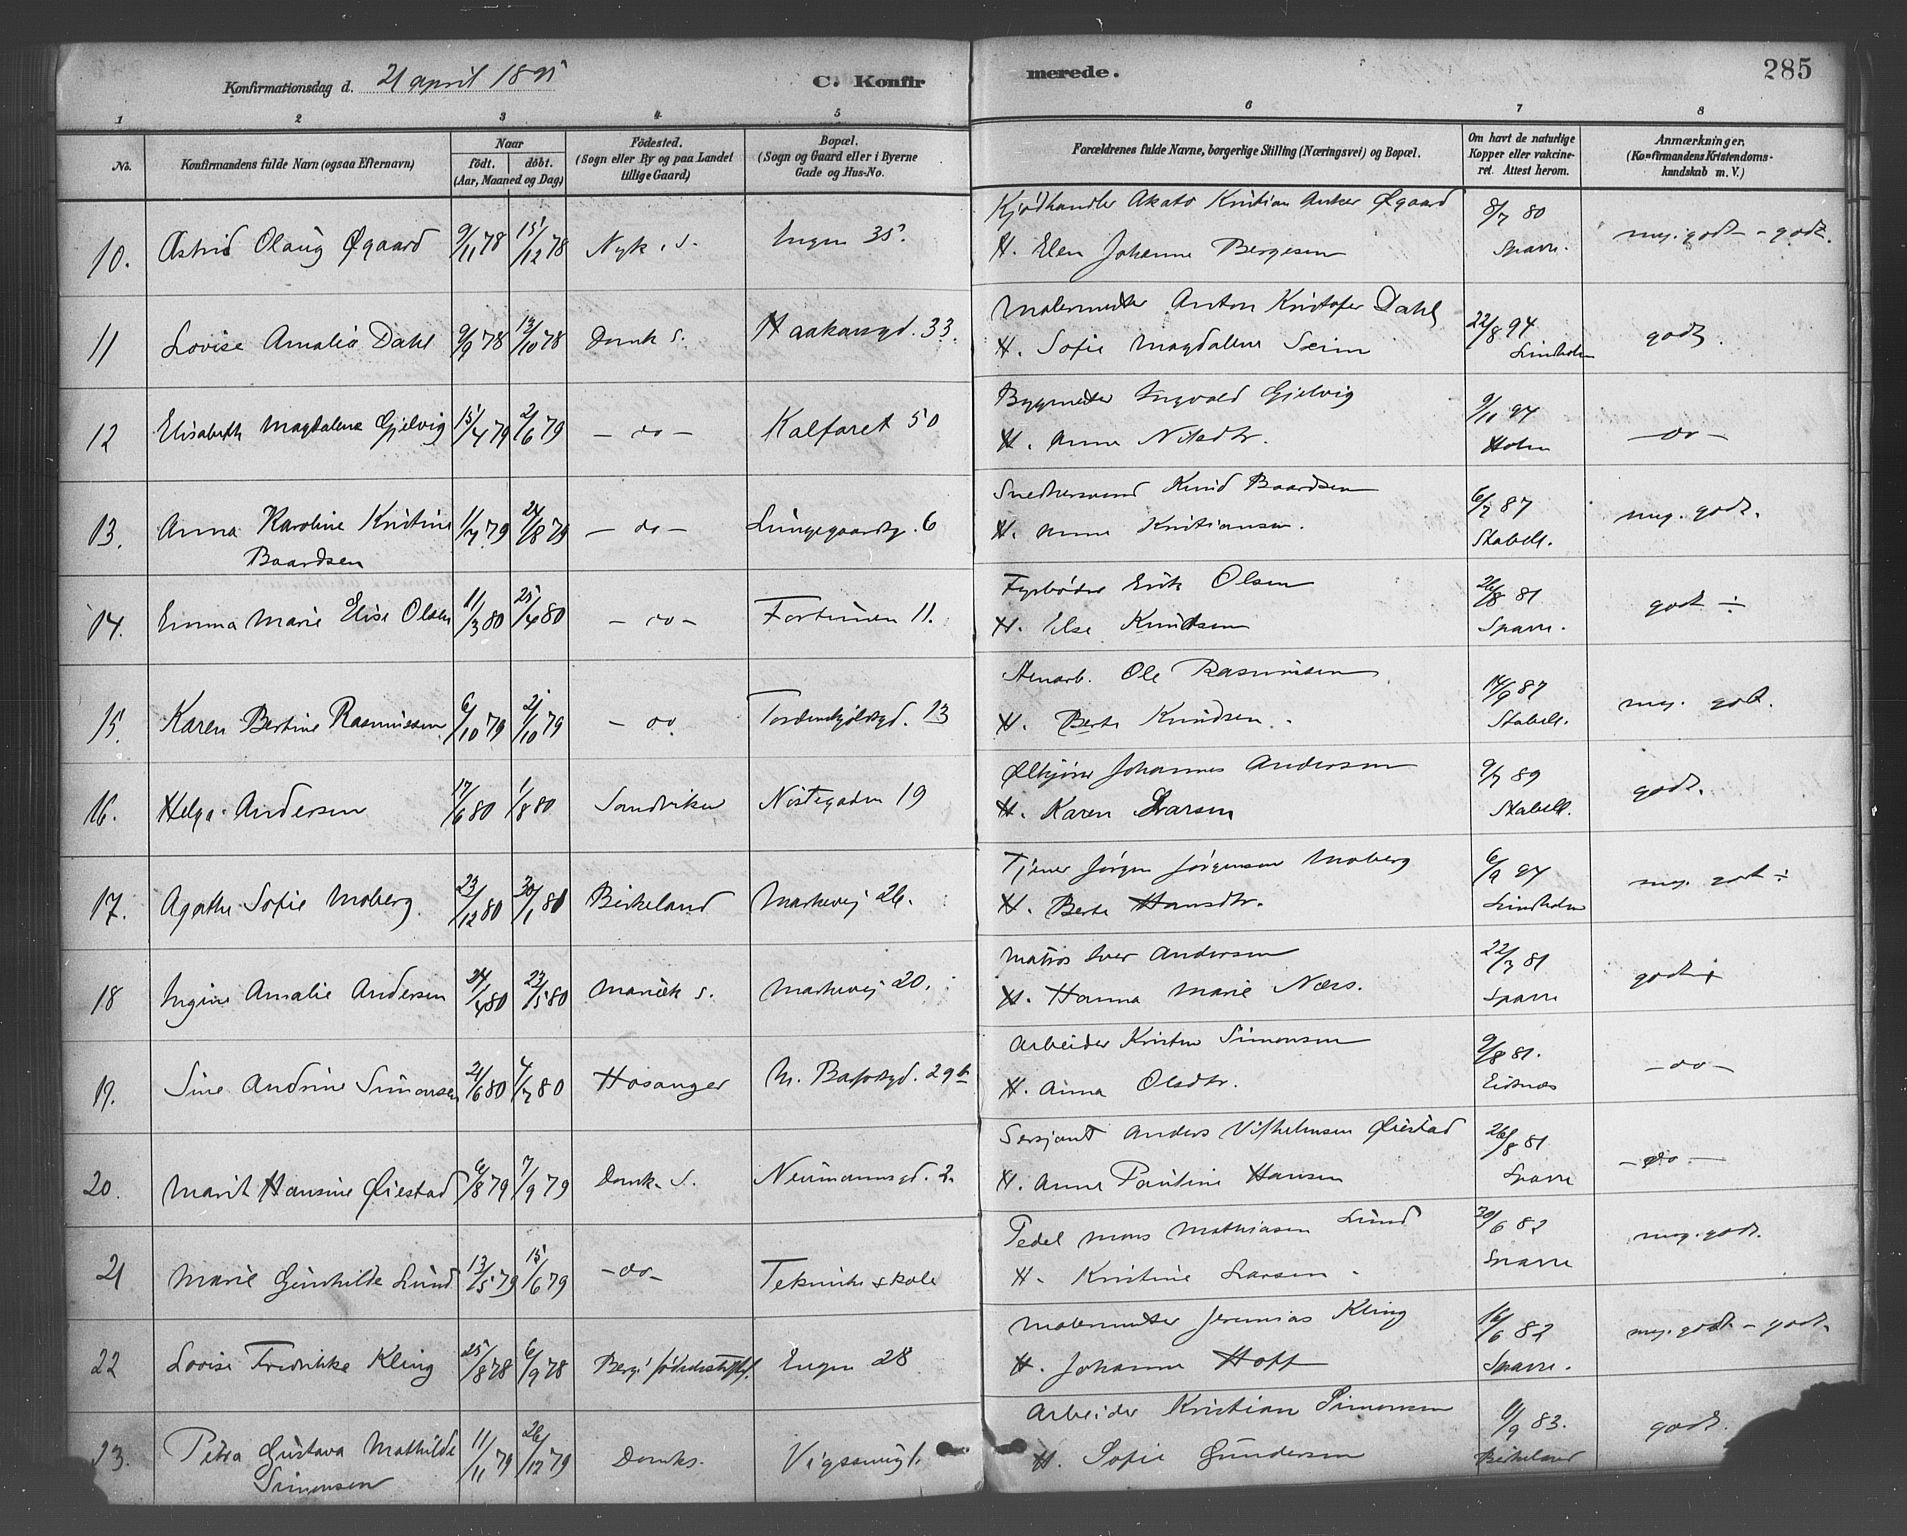 Konfirmationsdag d. 21 april 1895
C. Konfirmerede.
285
1 2 3 4 5 6 7 8
No.
Konfirmandens fulde Navn (ogsaa Efternavn)
Naar
födt. döbt.
(Aar, Maaned og Dag)
Födested.
(Sogn eller By og paa Landet
tillige Gaard)
Bopæl.
(Sogn og Gaard eller i Byerne
Gade og Hus-No.
Forældrenes fulde Navne, borgerlige Stilling (Næringsvei) og Bopæl.
Om havt de naturlige
Kopper eller vakcine-
ret. Attest herom.
Anmærkninger.
(Konfirmandens Kristendoms-
kundskab m. V.)
10. Astrid Olaug Øgaard 9/11 78 15/12 78 Nyk. s. Engen 35. Kjødhandler Akato Kristian Anker Øgaard 8/7 80 meg. godt - godt.
H. Elen Johanne Bergesen Sparre.
11 Lovise Amalia Dahl 9/9 78 13/10 78 Domk s. Haakonsgd. 33. Malermester Anton Kristofer Dahl 22/8 94 godt.
H. Sofie Magdalene Seim Lindholm
12 Elisabeth Magdalene Gjelvig 15/4 79 2/6 79 - do - Kalfaret 50 Bygmester Ingvald Gjelvig 9/11 94 - do -
H. Anna Nilsdtr. Holm
13. Anna Karoline Kristine 11/7 79 24/8 79 - do - Lungegaardsg. 6 Snedkersvend Knud Baardsen 6/7 87 meg. godt.
Baardsen H. Anne Kristiansen. Stabell.
14. Emma Marie Elise Olsen 11/3 80 25/4 80 - do - Fortunen 11. Fyrbøder Erik Olsen 26/8 81 godt ÷
H. Else Knudsen Sparre.
15. Karen Bertine Rasmussen 6/10 79 2/10 79 - do. Tordenskjoldsgd. 13 Stenarb. Ole Rasmussen 14/9 87 meg. godt.
H. Berta Knudsen. Stabell.
16. Helga Andersen 17/6 80 1/8 80 Sandviken Nøstegaden 19 Øltapper Johannes Andersen 9/7 89 godt.
H. Karen Larsen Stabell.
17. Agathe Sofie Moberg. 23/12 80 30/1 81 Birkeland Markevej 26. Tjener Jørgen Jørgensen Moberg 6/9 94 meg. godt ÷
H. Berte Hansdtr. Lindholm
18 Ingine Amalie Andersen 24/4 80 23/5 80 Mariæk s. Markevej 20. Matros Iver Andersen 22/3 81 godt ÷
H. Hanna Marie Næss. Sparre
19. Sine Andrine Simonsen 21/6 80 4/7 80 Hosanger N. Bafodsgd. 29 b Arbeider Kristen Simonsen 9/8 81. - do -
H. Anna Olsdtr. Eidsnæs
20. Marit Hansine Øiestad 6/8 79 7/9 79 Domk. s. Neumannsgd. 2. Sersjant Anders Vilhelmsen Øiestad 26/8 81 - do -
H. Anne Pauline Hansen Sparre
21 Marie Gunhilde Lund 13/5 79 15/6 79 - do - Teknisk skole Pedel Mons Mathiasen Lund 20/6 82 meg. godt.
H. Kristine Larsen. Sparre
22 Lovise Fredrikke Kling 25/8 78 6/9 78 Berg. fødselsstiftl. Engen 28 Malermester Jeremias Kling 16/6 82 meg. godt - godt.
H. Johanne Hoff Sparre.
23. Petra Gustava Mathilde 11/11 79 26/12 79 Domks. Arbeider Kristian Simonsen 11/9 83. godt.
Simonsen H. Sofie Gundersen Birkeland